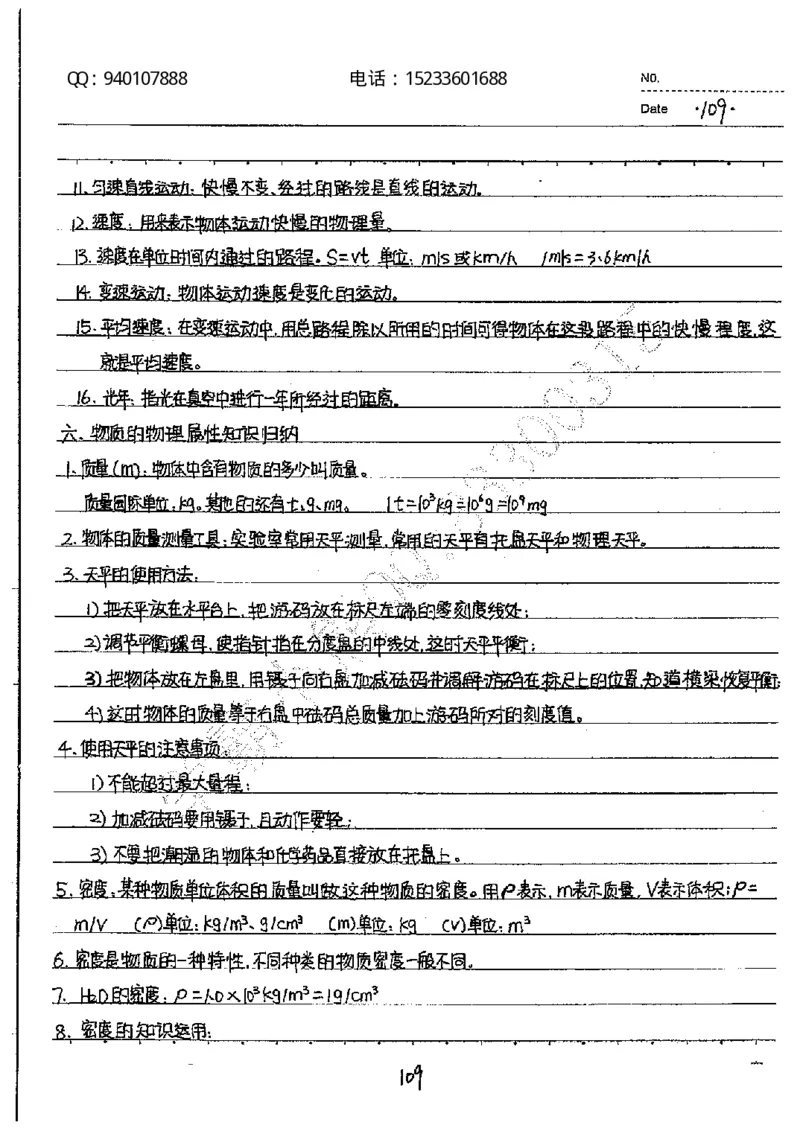 QQ：940107888 电话：15233601688 NO.
Date ·109·
11、匀速直线运动：快慢不变、经过的路线是直线的运动。
12、速度：用来表示物体运动快慢的物理量。
13、速度在单位时间内通过的路程。S=vt 单位：m/s或km/h 1m/s=3.6km/h
14、变速运动：物体运动速度是变化的运动。
15.平均速度：在变速运动中，用总路程除以所用的时间可得物体在这段路程中的快慢程度，这
就是平均速度。
16.光年：指光在真空中进行一年所经过的距离。
六、物质的物理属性知识归纳
1、质量(m)：物体中含有物质的多少叫质量。
质量国际单位：kg。其他的还有t、g、mg。 1t=10³kg=10⁶g=10⁹mg
2、物体的质量测量工具：实验室常用天平测量，常用的天平有托盘天平和物理天平。
3、天平的使用方法：
1)把天平放在水平台上，把游码放在标尺左端的零刻度线处；
2)调节平衡螺母，使指针指在分度盘的中线处，这时天平平衡；
3)把物体放在左盘里，用镊子向右盘加减砝码并调解游码在标尺上的位置，知道横梁恢复平衡；
4)这时物体的质量等于右盘中砝码总质量加上游码所对的刻度值。
4、使用天平的注意事项：
1)不能超过最大量程；
2)加减砝码要用镊子，且动作要轻；
3)不要把潮湿的物体和化学药品直接放在托盘上。
5、密度：某种物质单位体积的质量叫做这种物质的密度。用ρ表示，m表示质量，V表示体积；ρ=
m/V (ρ)单位：kg/m³、g/cm³ (m)单位：kg (V)单位：m³
6、密度是物质的一种特性，不同种类的物质密度一般不同。
7、H₂O的密度：ρ=1.0×10³kg/m³=1g/cm³
8、密度的知识运用：
109